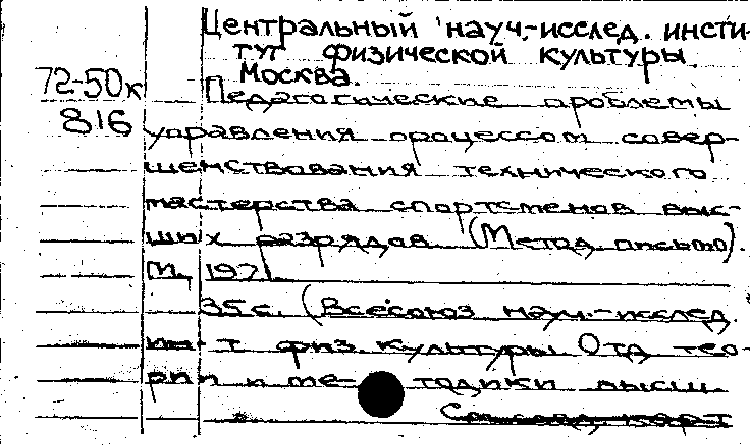 Центральный науч.-исслед. инсти-
тут физической культуры.
Москва.
72-50к
Педагогические проблемы
816
управления процессом совер-
шенствования технического
мастерства спортсменов выс-
ших разрядов. (Метод. письмо).
М., 1971.
35 с. (Всесоюз. науч.-исслед.
ин-т физ. культуры. Отд. тео-
рии и методики высш.